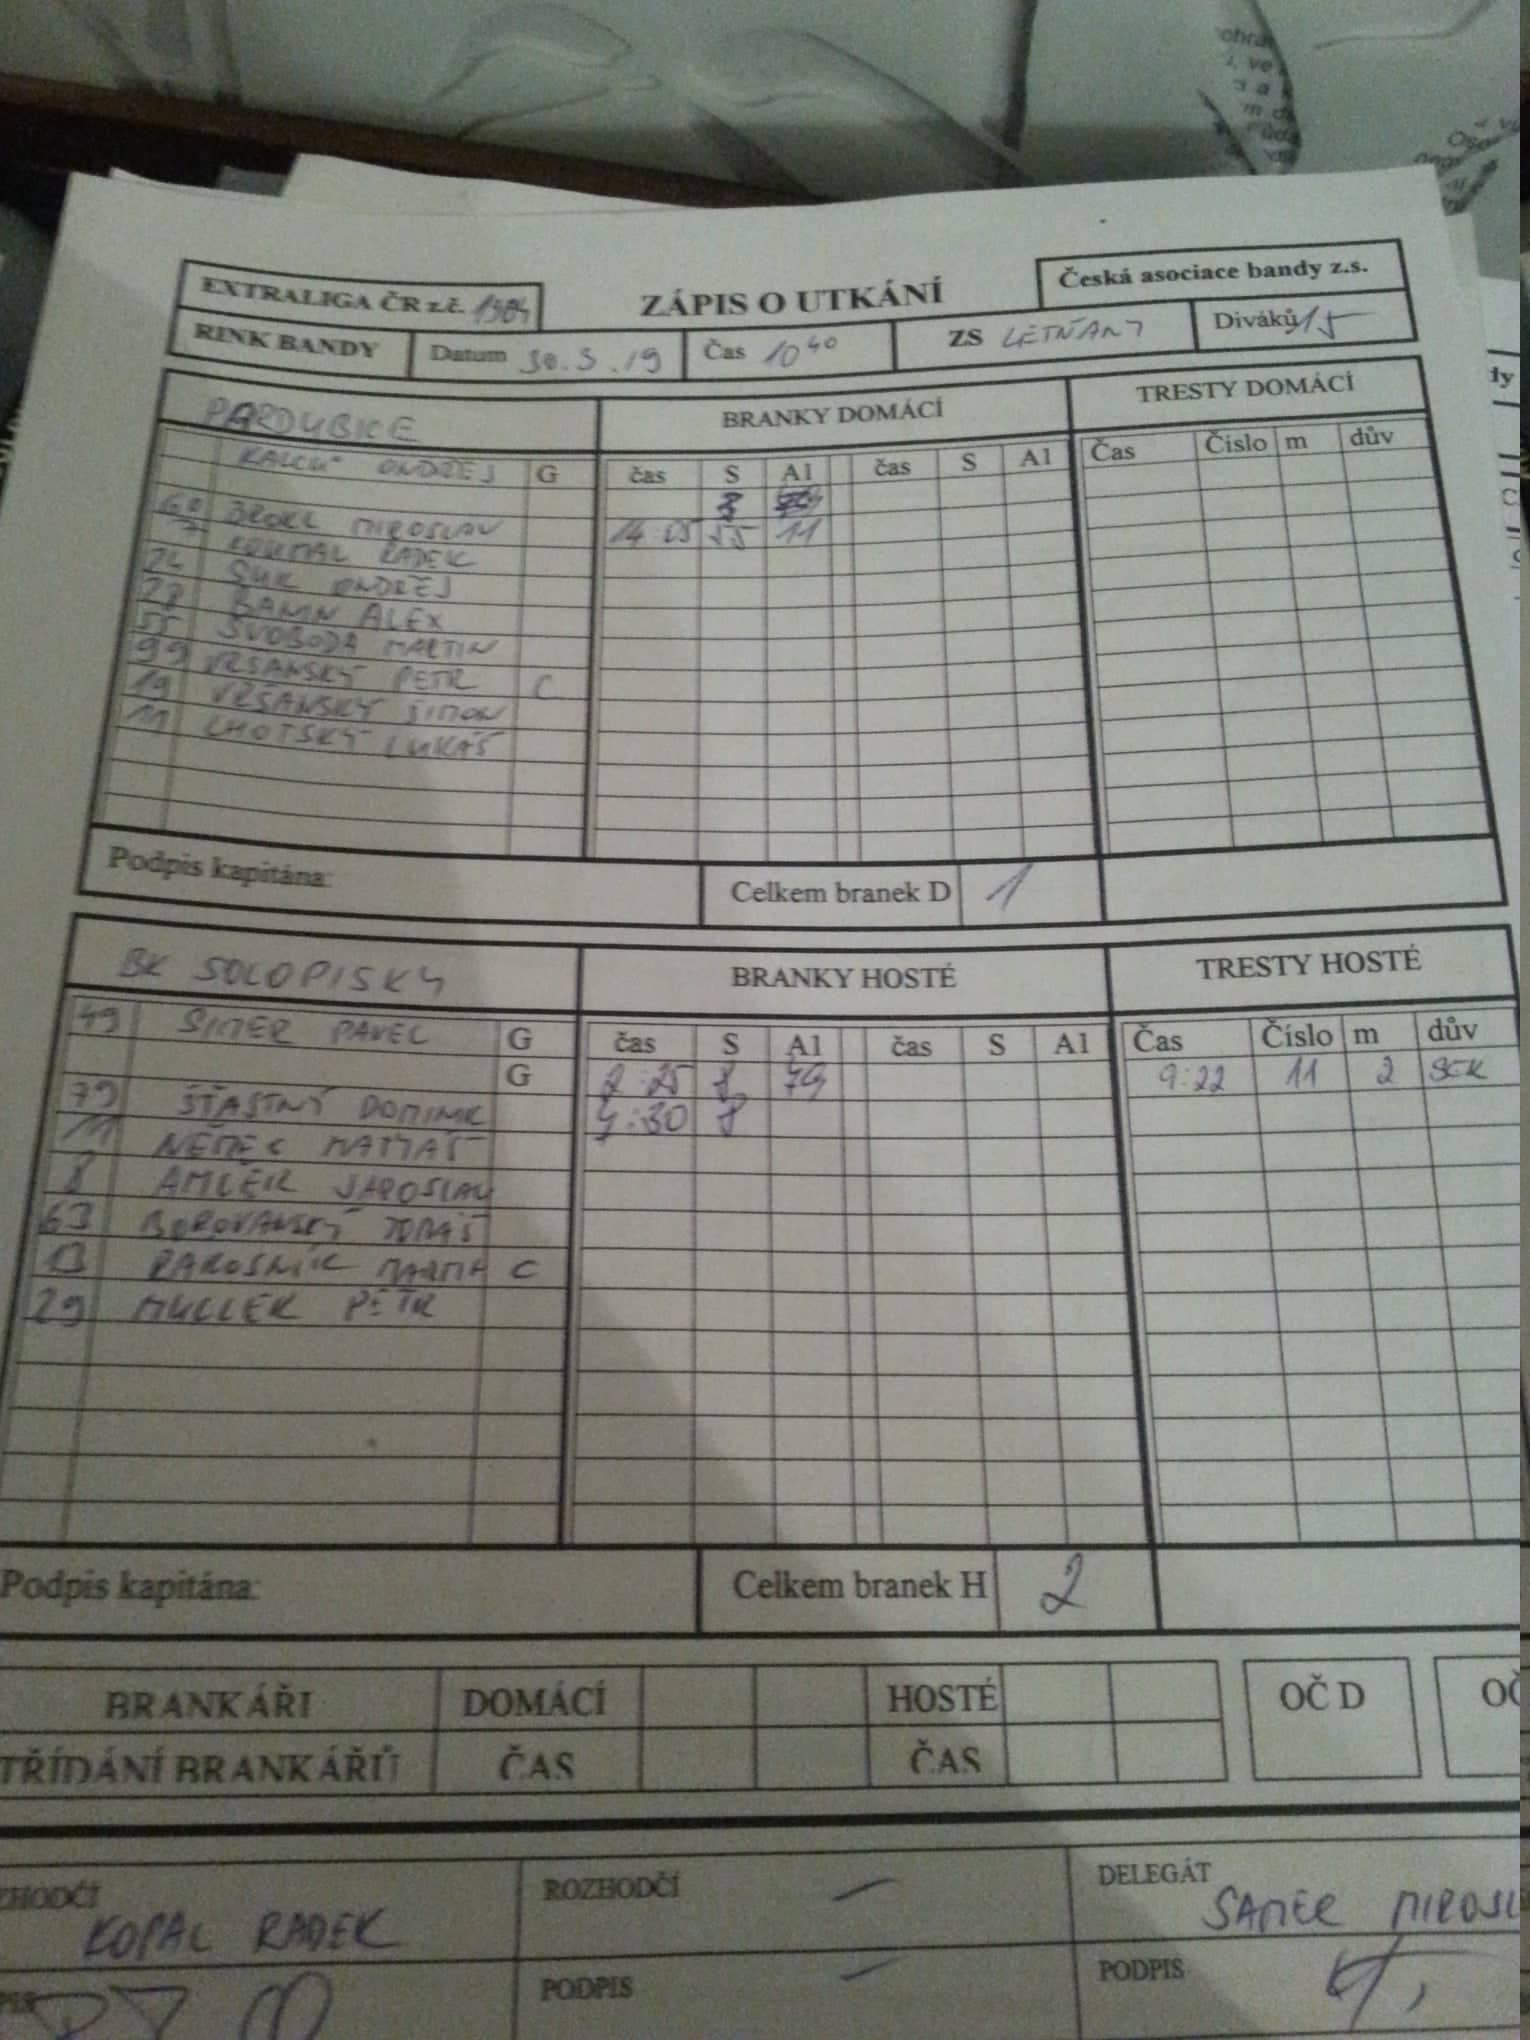 EXTRALIGA ČR z.č. 1984 ZÁPIS O UTKÁNÍ Česká asociace bandy z.s.
RINK BANDY Datum 30.3.19 Čas 10 40 ZS LETŇANY Diváků 15
PARDUBICE BRANKY DOMÁCÍ TRESTY DOMÁCÍ
ONDŘEJ G čas S A1 čas S A1 Čas Číslo m dův
60 MIROSLAV
7 RADEK 14:05 55 11
24 SUK ONDŘEJ
ALEX
55 SVOBODA MARTIN
99 VRŠANSKÝ PETR C
19 VRŠANSKÝ ŠIMON
11 LHOTSKÝ LUKÁŠ
Podpis kapitána: Celkem branek D 1
BK SOLOPISKY BRANKY HOSTÉ TRESTY HOSTÉ
49 PAVEL G čas S A1 čas S A1 Čas Číslo m dův
G 2:25 8 79 9:22 11 2 SEK
79 ŠŤASTNÝ DOMINIK 4:30 8
11 NĚMEC MATYÁŠ
8 AMLER JAROSLAV
63 BOROVANSKÝ TOMÁŠ
13 RAKOSNÍK MARTIN C
29 MULLER PETR
Podpis kapitána: Celkem branek H 2
BRANKÁŘI DOMÁCÍ HOSTÉ OČ D
TŘÍDÁNÍ BRANKÁŘŮ ČAS ČAS
ROZHODČÍ – DELEGÁT
KOPAL RADEK
PODPIS – PODPIS